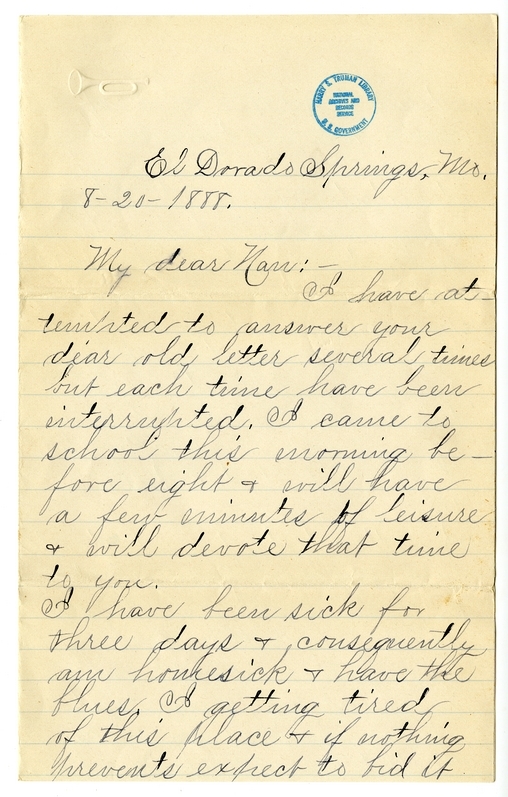 HARRY S. TRUMAN LIBRARY
NATIONAL
ARCHIVES AND
RECORDS
SERVICE
U. S. GOVERNMENT
El Dorado Springs, Mo.
8-20-1888.
My dear Nan:—
I have at-
tempted to answer your
dear old letter several times
but each time have been
interrupted. I came to
school this morning be-
fore eight & will have
a few minutes of leisure
& will devote that time
to you.
I have been sick for
three days & consequently
am homesick & have the
blues. I getting tired
of this place & if nothing
prevents expect to bid it